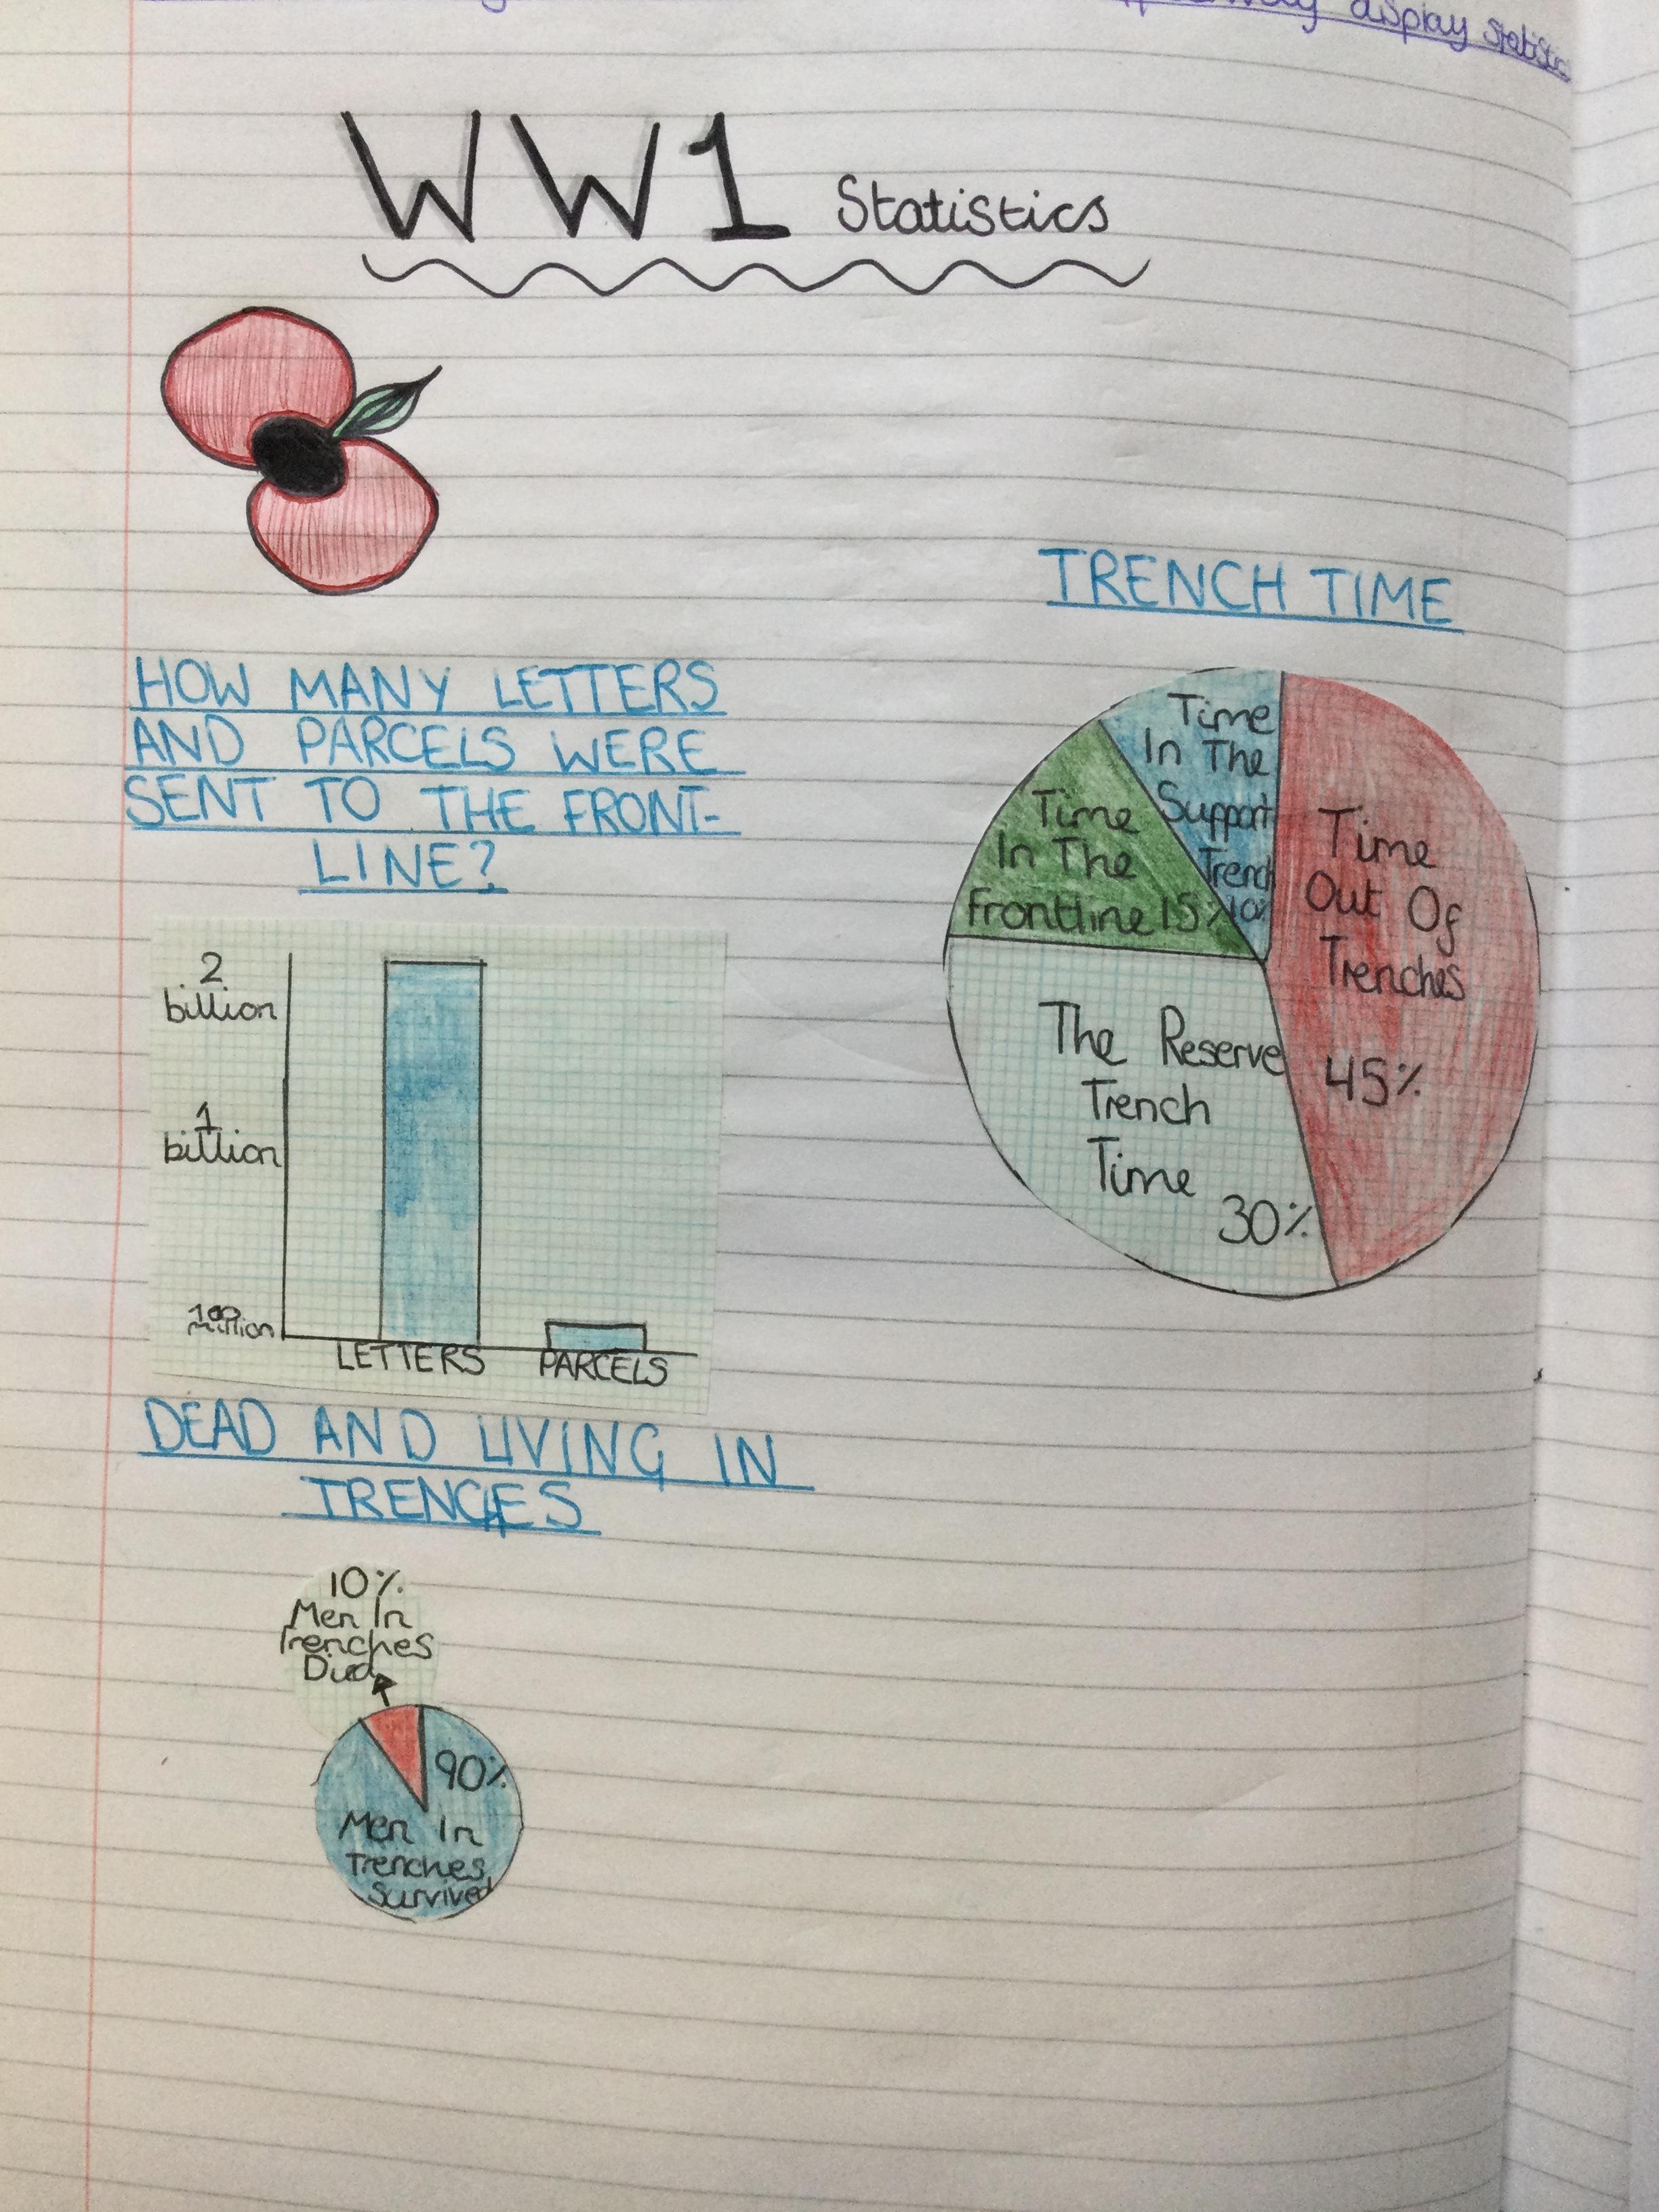 display statistic
WW1 Statistics
TRENCH TIME
HOW MANY LETTERS
AND PARCELS WERE
SENT TO THE FRONT-
LINE?
Time
In The
Support
Trench
10%
Time
In The
Frontline 15%
Time
Out Of
Trenches
45%
The Reserve
Trench
Time
30%
2
billion
1
billion
100
million
LETTERS
PARCELS
DEAD AND LIVING IN
TRENCHES
10%
Men In
Trenches
Died
90%
Men In
Trenches
Survived